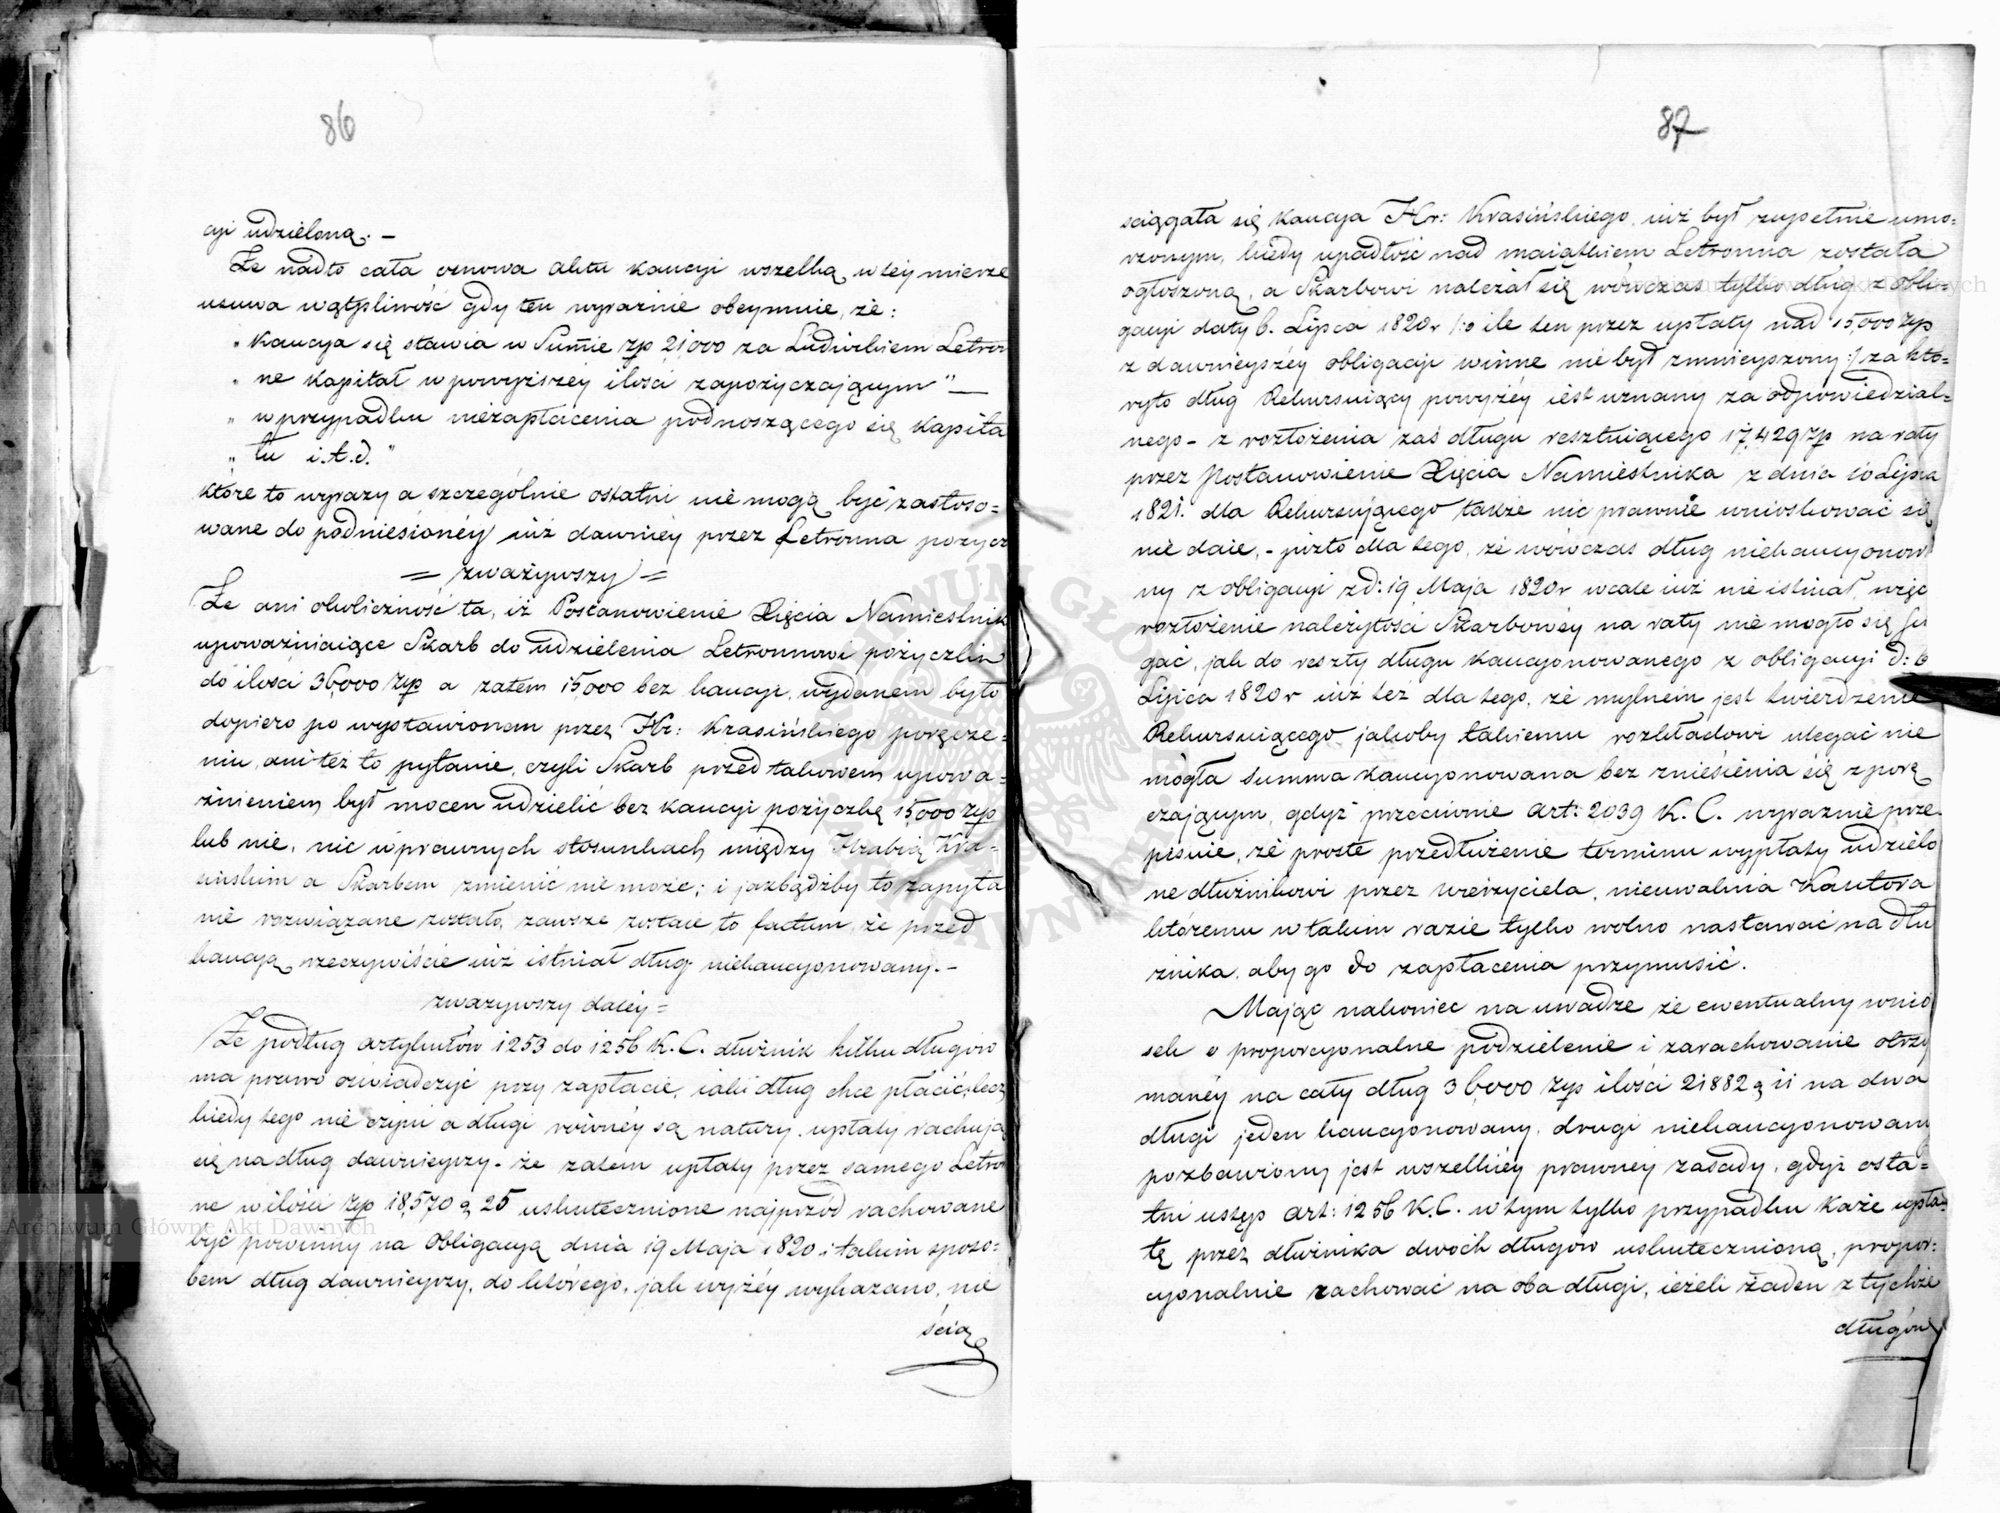 86
cyi udzieloną. —
Że nadto cała osnowa aktu kaucyi wszelką w tey mierze
usuwa wątpliwość gdy ten wyraznie obeymuie, że:
„ Kaucya się stawia w Summie zp 21,000 za Ludwikiem Letron
„ ne kapitał w powyższéy ilości zapożyczaiącym "—
„ w przypadku niezapłacenia podnoszącego się kapita
„ łu i.t.d. "
które to wyrazy a szczególnie ostatni nie mogą być zastoso=
wane do podniesionéy iuż dawniéy przez Letronna pożycz
= zważywszy =
Że ani okoliczność ta, iż Postanowienie Xięcia Namiestnik
upoważniaiące Skarb do udzielenia Letronnowi pożyczki
do ilości 36,000 zp a zatem 15,000 bez kaucyi, wydanem było
dopiero po wystawionem przez Hr: Krasińskiego poręcze=
niu, ani też to pytanie, czyli Skarb przed takowem upowa=
żnieniem był mocen udzielić bez kaucyi pożyczkę 15,000 zp
lub nie, nic w prawnych stosunkach między Hrabią Kra=
sińskim a Skarbem zmienić nie może; i jakbądźby to zapyta
nie rozwiązane zostało, zawsze zostaie to factum, że przed
kaucją rzeczywiście iuż istniał dług niekaucyonowany. —
zważywszy daley =
Że podług artykułów 1253 do 1256 K.C. dłużnik kilku długów
ma prawo oświadczyć przy zapłacie, iaki dług chce płacić, lecz
kiedy tego nie czyni a długi równéy są natury, upłaty rachują
się na dług dawnieyszy - że zatem upłaty przez samego Letro
ne w ilości zp 18,570 g 25 uskutecznione najprzód rachowane
być powinny na Obligacyą dnia 19 Maja 1820 i takim sposo=
bem dług dawnieyszy, do którego, jak wyżéy wykazano, nie
ścią
87
sciągała się kaucya Hr: Krasińskiego, iuż był zupełnie umo=
rzonym, kiedy upadłość nad maiątkiem Letronna została
ogłoszoną, a Skarbowi należał się wówczas tylko dług z obli=
gacyi daty 6. Lipca 1820r /:o ile ten przez upłaty nad 15,000 zp
z dawnieyszéy obligacyi winne nie był zmnieyszony:/ za któ=
ryto dług Rekursuiący powyżéy iest uznany za odpowiedzial=
nego - z rozłożenia zaś długu resztuiącego 17,429 zp na raty
przez Postanowienie Xięcia Namiestnika z dnia 10 Lipca
1821. dla Rekursującego także nic prawnie wnioskować się
nie daie, - jużto dla tego, że wówczas dług niekaucyonow
ny z obligacyi z d: 19 Maja 1820r wcale iuż nie istniał, więc
rozłożenie należytości Skarbowéy na raty nie mogło się ścią
gać, jak do reszty długu kaucyonowanego z obligacyi d: 6
Lipca 1820r iuż też dla tego, że mylnem jest twierdzenie
Rekursuiącego jakoby takiemu rozkładowi ulegać nie
mogła summa kaucyonowana bez zniesienia się z porę
czającym, gdyż przeciwnie art: 2039 K. C. wyraznie prze
pisuie, że proste przedłużenie terminu wypłaty udzielo
ne dłużnikowi przez wierzyciela, nieuwalnia Kautora
któremu w takim razie tylko wolno nastawać na dłu
żnika, aby go do zapłacenia przymusić.
Mając nakoniec na uwadze że ewentualny wnio
sek o proporcyonalne podzielenie i zarachowanie otrzy
manéy na cały dług 36,000 zp ilości 21882 g 11 na dwa
długi jeden kaucyonowany, drugi niekaucyonowany
pozbawiony jest wszelkiéy prawnéy zasady, gdyż osta=
tni ustęp art: 1256 K.C. w tym tylko przypadku każe upła=
tę przez dłużnika dwóch długów uskutecznioną, propor:
cyonalnie rachować na oba długi, ieżeli żaden z tychże
długów